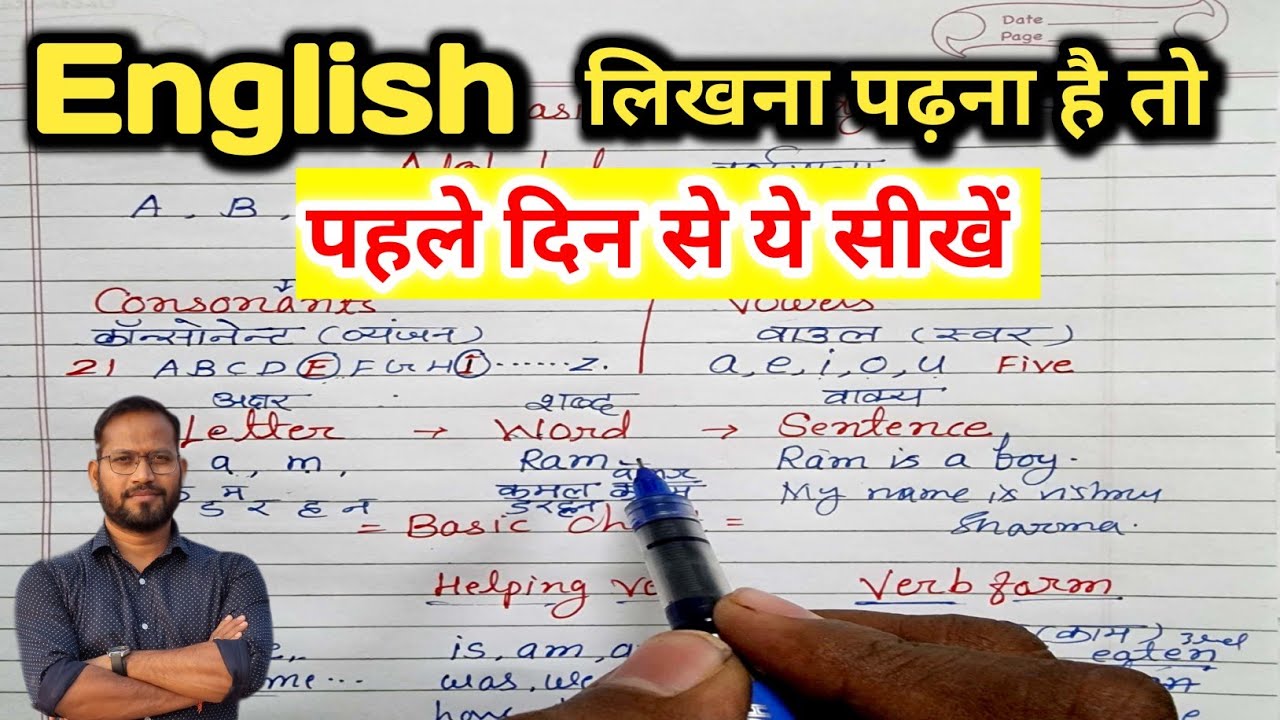 Date
Page
English लिखना पढ़ना है तो
A, B,
पहले दिन से ये सीखें
Consonants
Vowels
कॉन्सोनेन्ट (व्यंजन)
वाउल (स्वर)
21 A B C D E F G H I ...... Z.
a, e, i, o, u Five
अक्षर शब्द वाक्य
Letter → Word → Sentence
a, m, Ram Ram is a boy.
ड र ह न कमल My name is
डरहन Sharma.
= Basic =
Helping Verb form
(काम) 3rd
is, am, eaten
me... was,